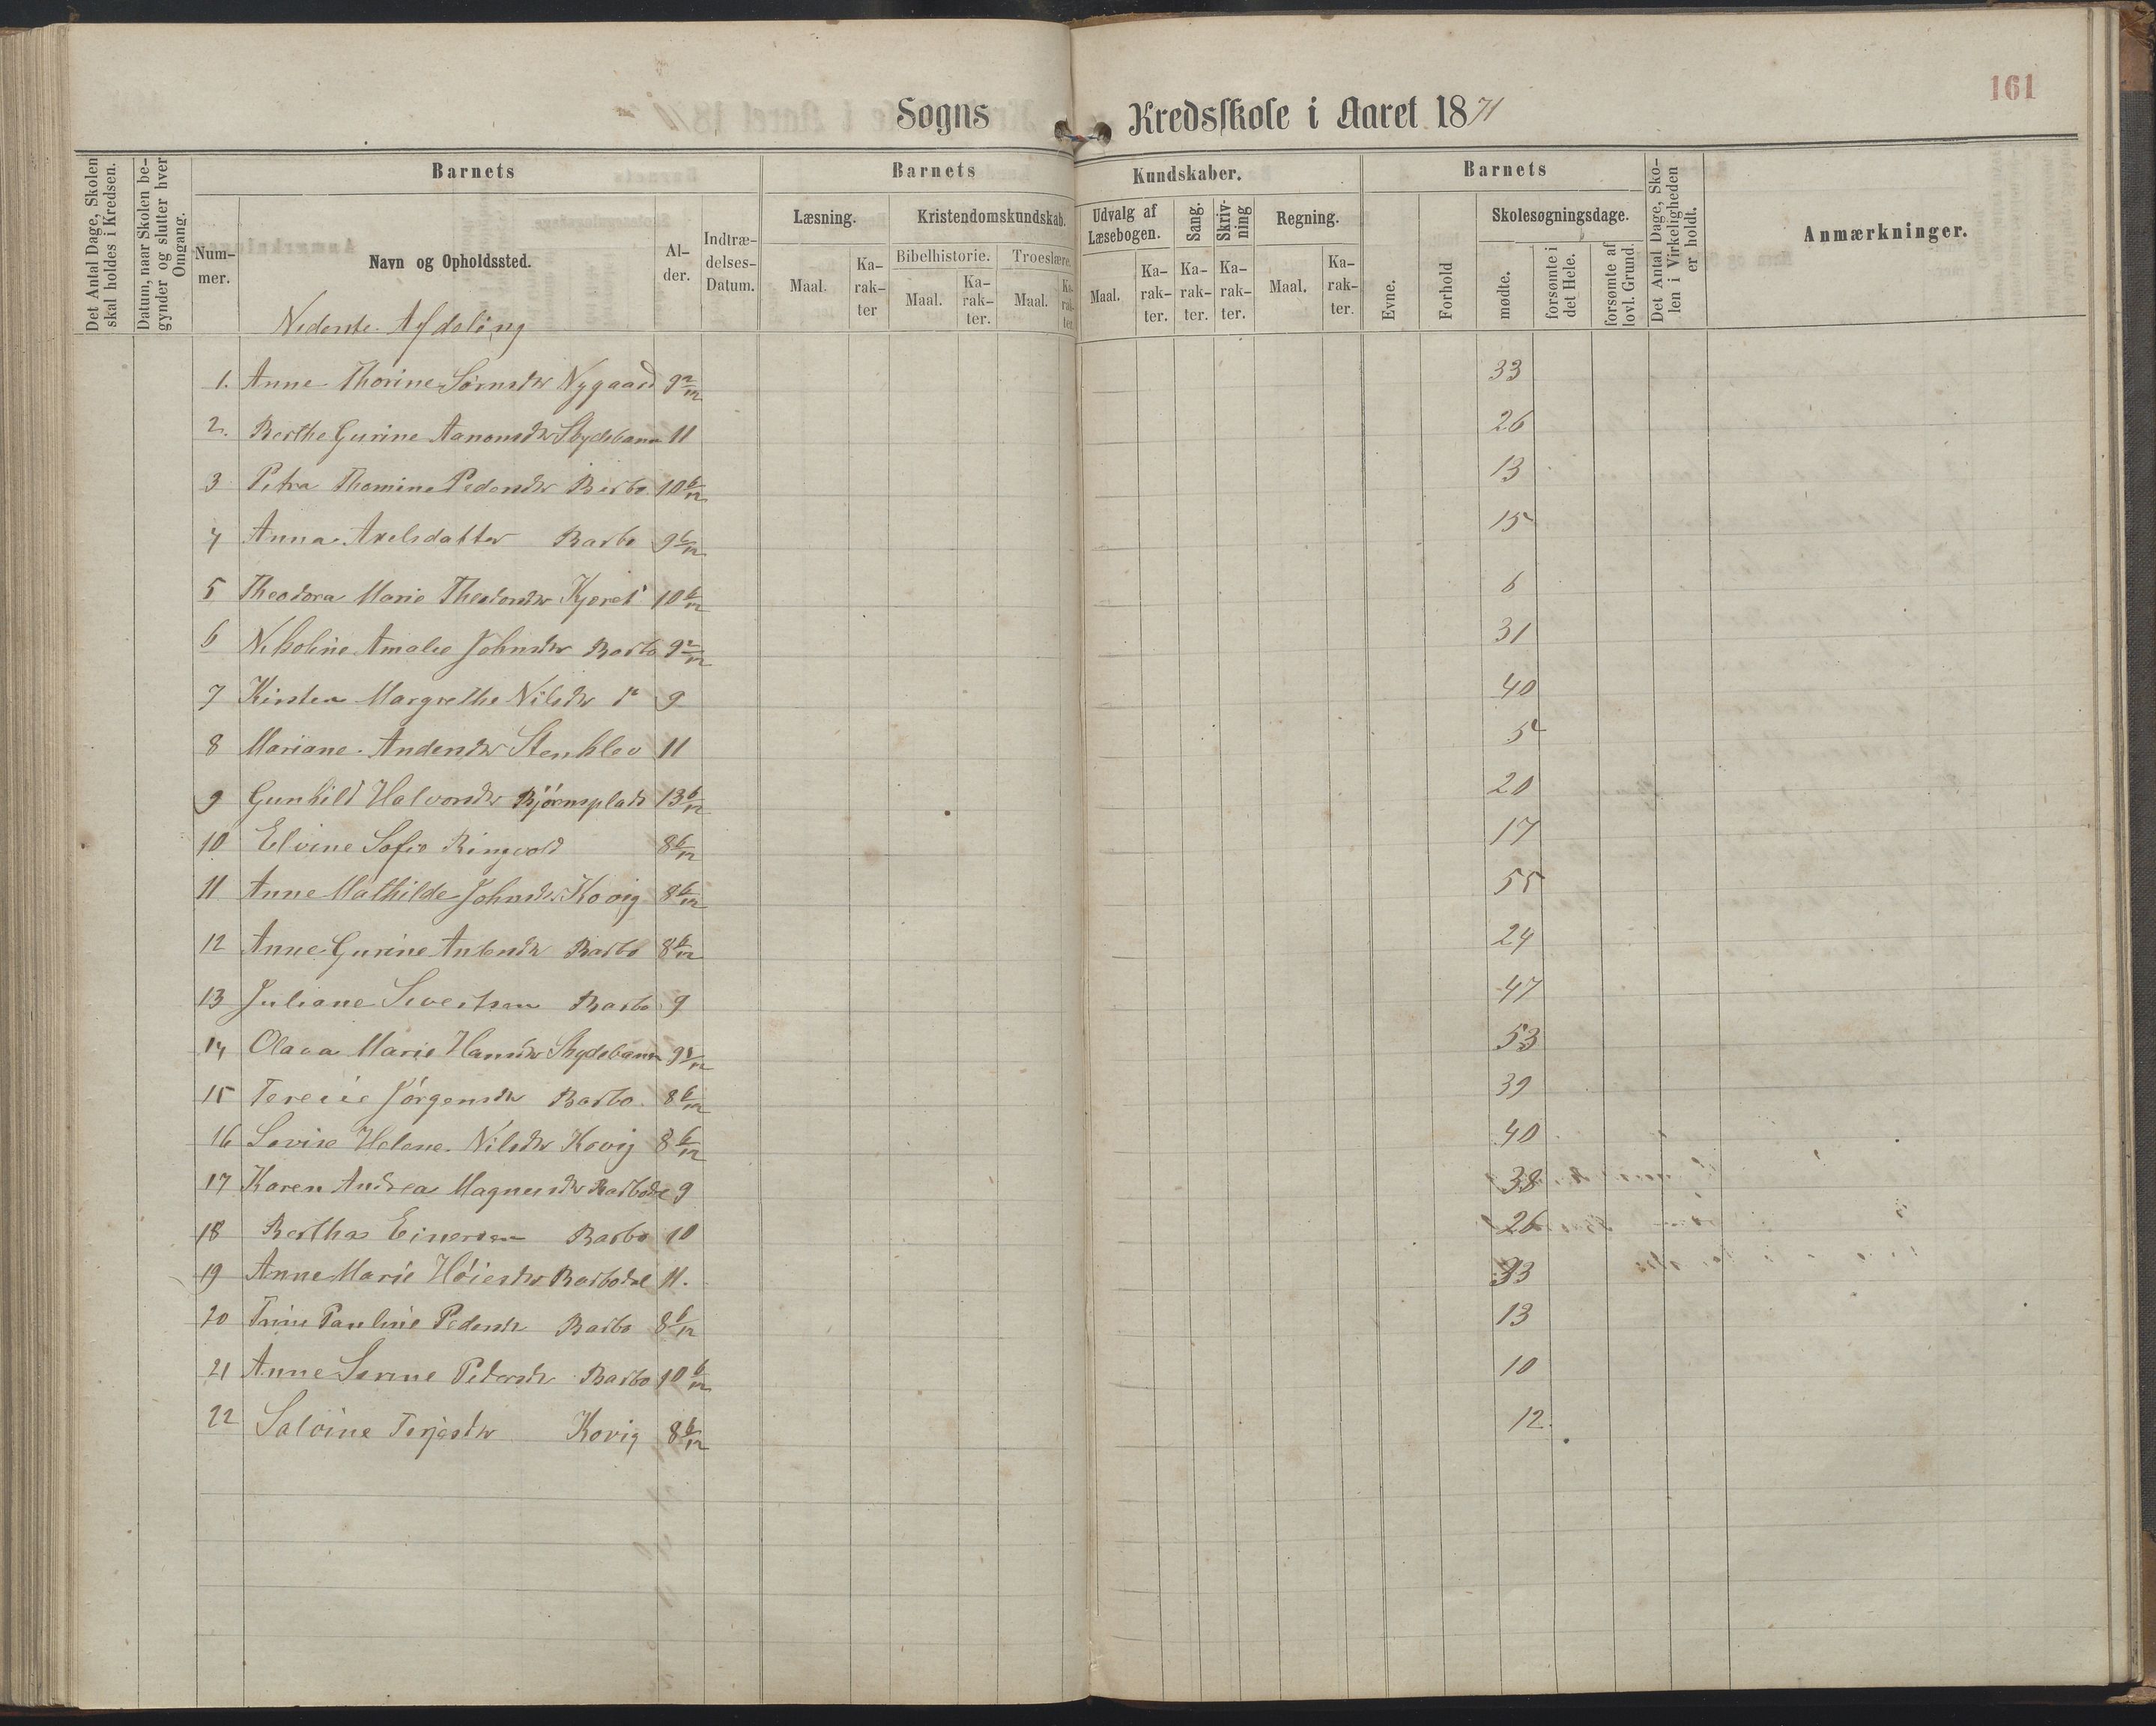 161
Sogns Kredsskole i Aaret 1871
Det Antal Dage, Skolen skal holdes i Kredsen.
Datum, naar Skolen begynder og slutter hver Omgang.
Barnets
Nummer.
Navn og Opholdssted.
Alder.
Indtrædelses-Datum.
Barnets Kundskaber.
Læsning.
Maal.
Karakter
Kristendomskundskab.
Bibelhistorie.
Maal.
Karakter.
Troeslære.
Maal.
Karakter.
Udvalg af Læsebogen.
Maal.
Karakter.
Sang.
Karakter.
Skrivning
Karakter.
Regning.
Maal.
Karakter.
Barnets
Evne.
Forhold
Skolesøgningsdage.
mødte.
forsømte i det Hele.
forsømte af lovl. Grund.
Det Antal Dage, Skolen i Virkeligheden er holdt.
Anmærkninger.
Nederste Afdeling
1. Anne Thorine Sørensdtr Nygaard 9 2/12 33
2. Berthe Gurine Aanonsdtr 11 26
3 Petra Thomine Pedersdtr Barbo 10 6/12 13
4 Anna Axelsdatter Barbo 9 6/12 15
5 Theodora Marie 10 6/12 6
6 Nikoline Amalie Johnsdtr Barbo 9 2/12 31
7 Kirsten Margrethe Nilsdtr do 9 40
8 Mariane Andersdtr Stenklev 11 5
9 Gunhild Halvorsdtr Bjørnsplads 13 6/12 20
10 Elvine Sofie Ringvold 8 6/12 17
11 Anne Mathilde Johnsdtr Kovig 8 6/12 55
12 Anne Gurine Barbo 8 6/12 24
13 Juliane Sivertsen Barbo 9 47
14 Olava Marie Hansdtr 53
15 Jørgensdtr Barbo 8 6/12 39
16 Lovise Helene Nilsdtr Kovig 8 6/12 40
17 Karen Andrea Magnusdtr Barbodal 9 38
18 Berthas Einersen Barbo 10 26
19 Anne Marie Høiesdtr Barbodal 11. 33
20 Trine Pauline Pedersdtr Barbo 8 6/12 13
21 Anne Serine Pedersdtr Barbo 10 6/12 10
22 Salvine Terjesdtr Kovig 8 6/12 12